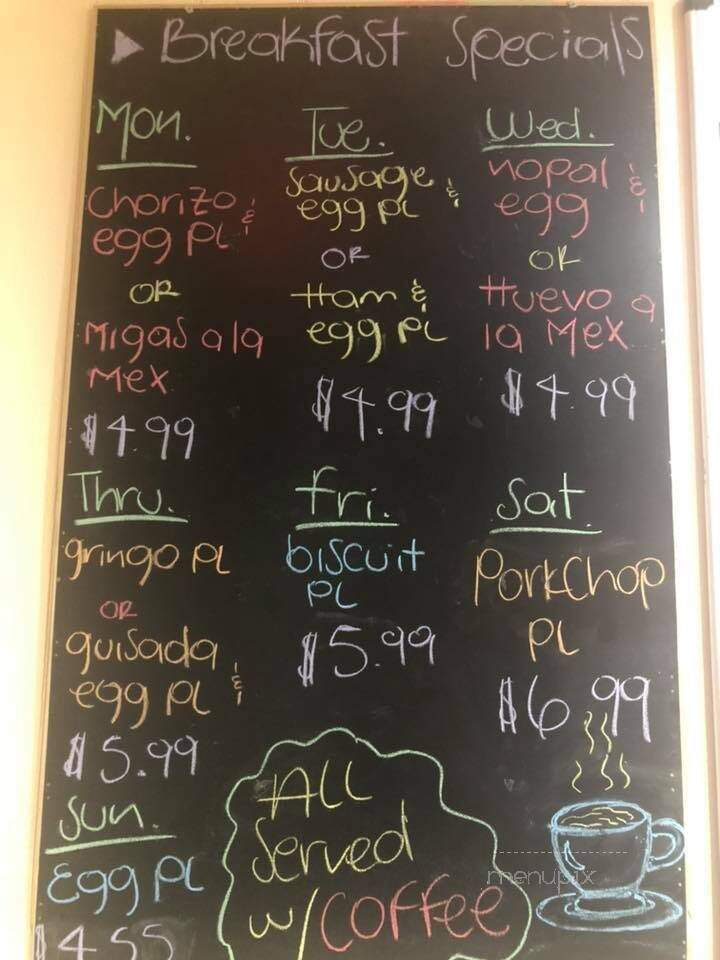 Breakfast Specials
Mon.
Chorizo &
egg PL
OR
Migas a la
Mex
$4.99
Tue.
Sausage &
egg PL
OR
Ham &
egg PL
$4.99
Wed.
nopal &
egg
OR
Huevo a
la Mex
$4.99
Thru.
gringo PL
OR
guisada &
egg PL
$5.99
Fri.
biscuit
PL
$5.99
Sat.
PorkChop
PL
$6.99
Sun.
Egg PL
$4.55
All
Served
w/Coffee
menupix